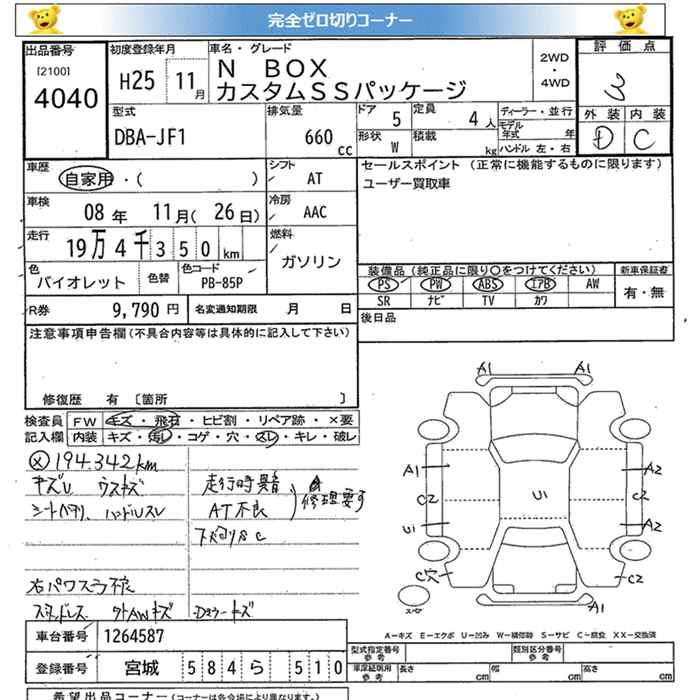 完全ゼロ切りコーナー
出品番号 初度登録年月 車名・グレード 2WD・4WD 評価点
[2100] 4040 H25 11月 N BOX カスタムSSパッケージ 3
外装 内装
D C
型式 排気量 ドア 定員 ディーラー・並行
DBA-JF1 660cc 5 4人 モデル年式 年
形状 W 積載 kg ハンドル 左・右
車歴 シフト セールスポイント (正常に機能するものに限ります)
自家用・( ) AT ユーザー買取車
車検 冷房
08年 11月(26日) AAC
走行 燃料
19万4千350km ガソリン
色 色替 色コード 装備品(純正品に限り○をつけてください) 新車保証書
バイオレット PB-85P PS PW ABS エアB AW 有・無
SR ナビ TV カワ
R券 9,790円 名変通知期限 月 日 後日品
注意事項申告欄(不具合内容等は具体的に記入して下さい)
修復歴 有 [箇所 ]
検査員 FW キズ・飛石・ヒビ割・リペア跡・×要
記入欄 内装 キズ・汚レ・コゲ・穴・スレ・キレ・破レ
194.342km
キズU ウスキズ 走行時異音 修理要す
シートヘタリ、ハンドルスレ AT不良
下廻りSC
右パワスラ不良
A1 A1
A1 A2
C2 U1 C2
U1 A2
C穴 C2
A1
A-キズ E-エクボ U-凹み W-補修跡 S-サビ C-腐食 XX-交換済
車台番号 1264587 型式指定番号 参考 類別区分番号 参考
登録番号 宮城 584 ら 510 車庫証明用 参考 長さ cm 幅 cm 高さ cm
希望出品コーナー (コーナーは各会場により異なります。)